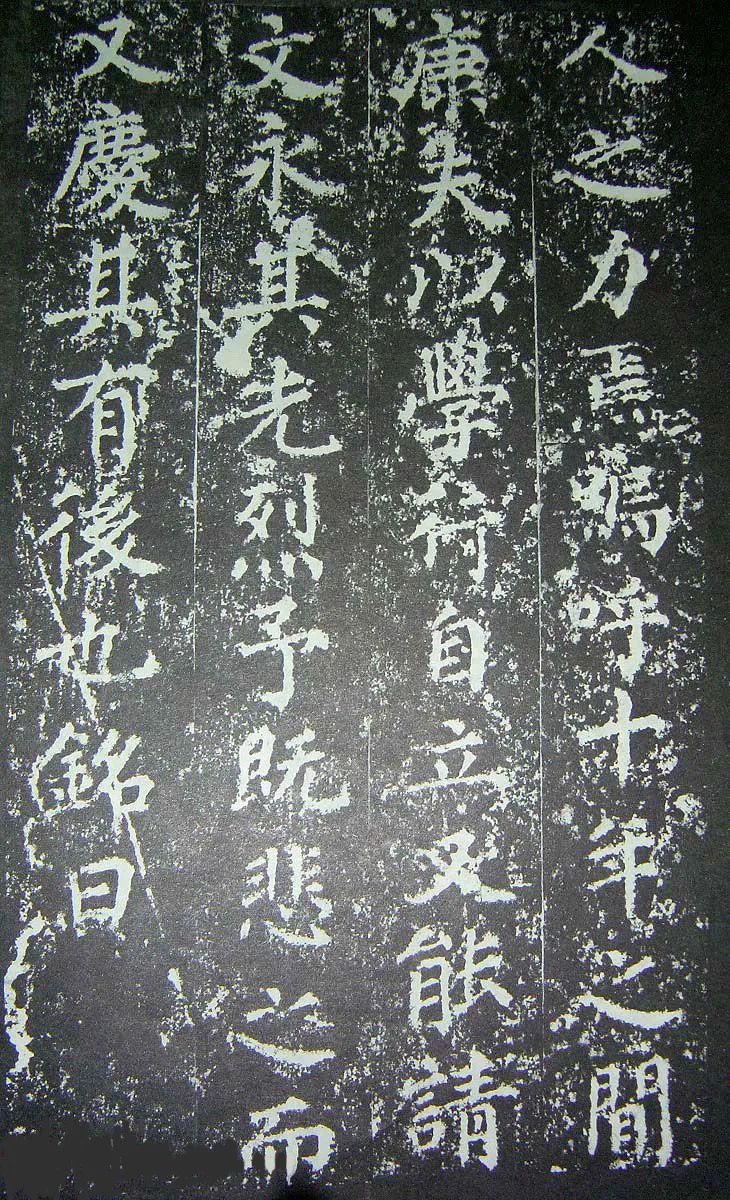 人之力焉嗚呼十年之間
康夫以學自立又能請
文永其先烈予既悲之而
又慶其有後也銘曰